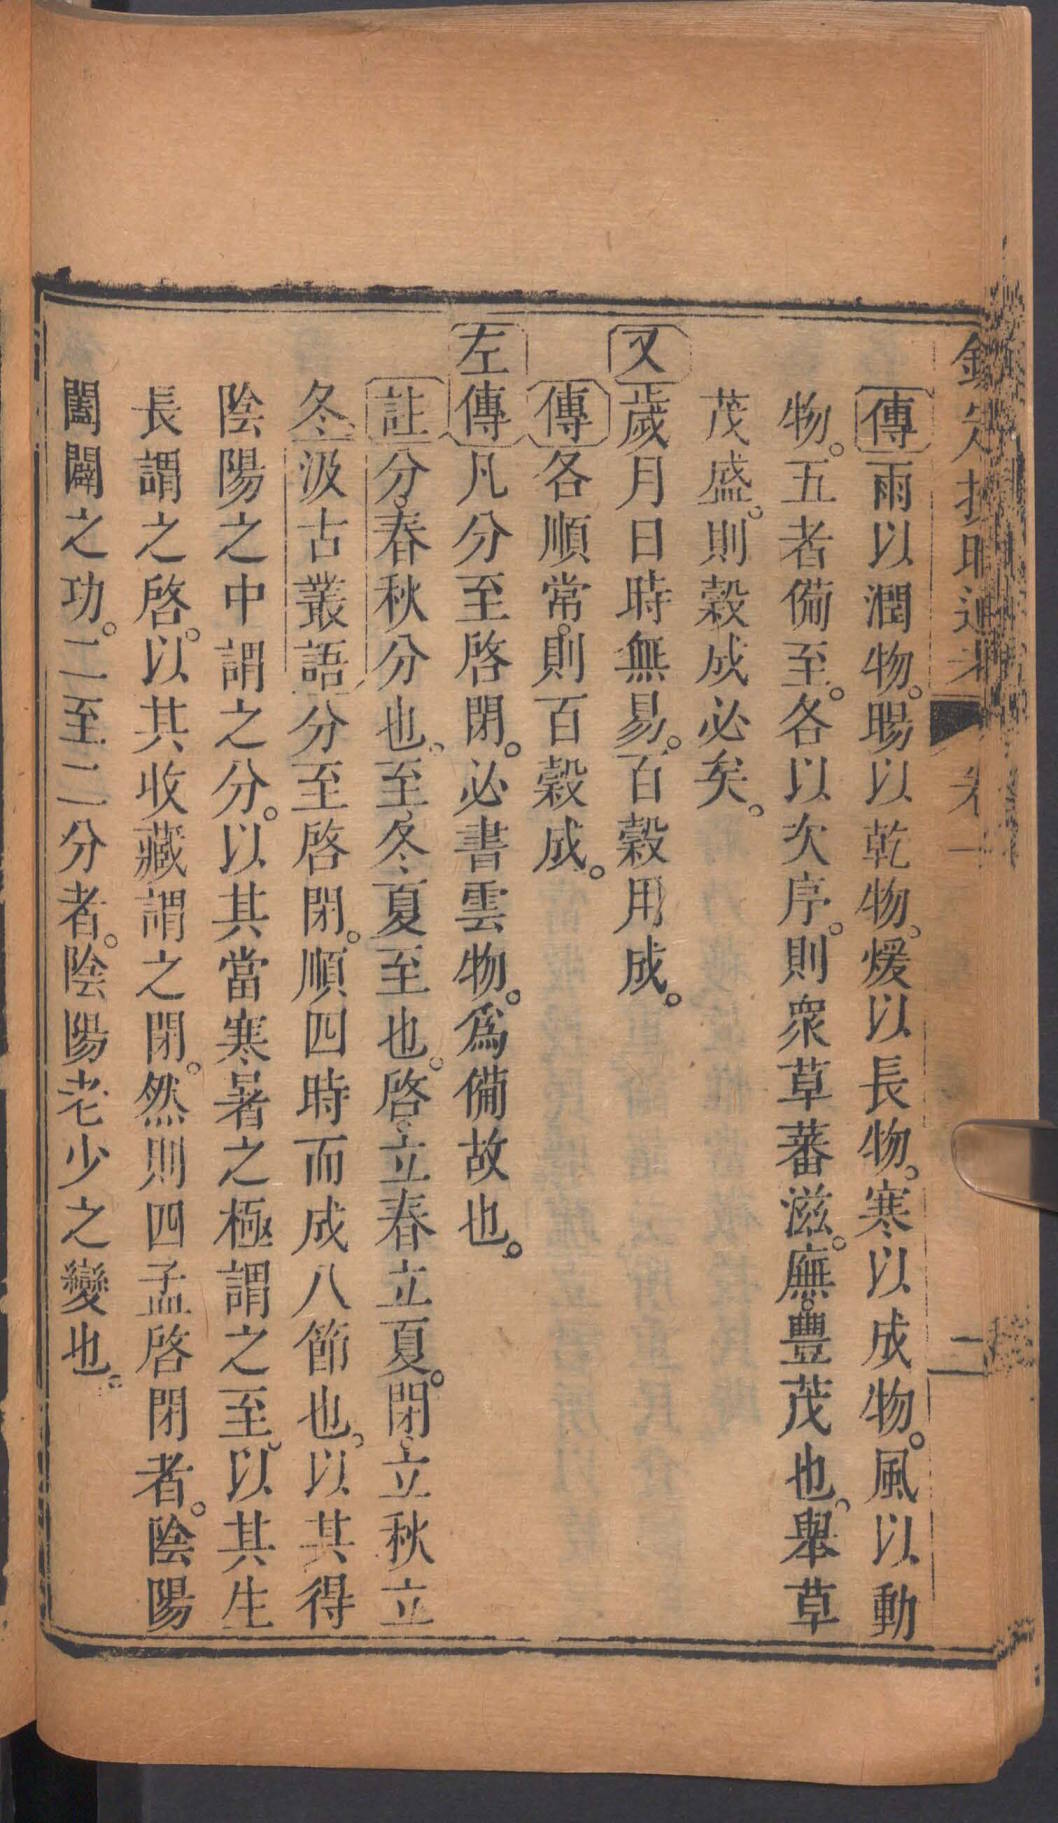 欽定授時通考 卷一 二
傳雨以潤物。暘以乾物。煖以長物。寒以成物。風以動
物。五者備至。各以次序。則衆草蕃滋。廡。豐茂也。舉草
茂盛。則穀成必矣。
又歲月日時無易。百穀用成。
傳各順常。則百穀成。
左傳凡分至啓閉。必書雲物。爲備故也。
註分。春秋分也。至。冬夏至也。啓。立春立夏。閉。立秋立
冬。汲古叢語分至啓閉。順四時而成八節也。以其得
陰陽之中謂之分。以其當寒暑之極謂之至。以其生
長謂之啓。以其收藏謂之閉。然則四孟啓閉者。陰陽
闔闢之功。二至二分者。陰陽老少之變也。